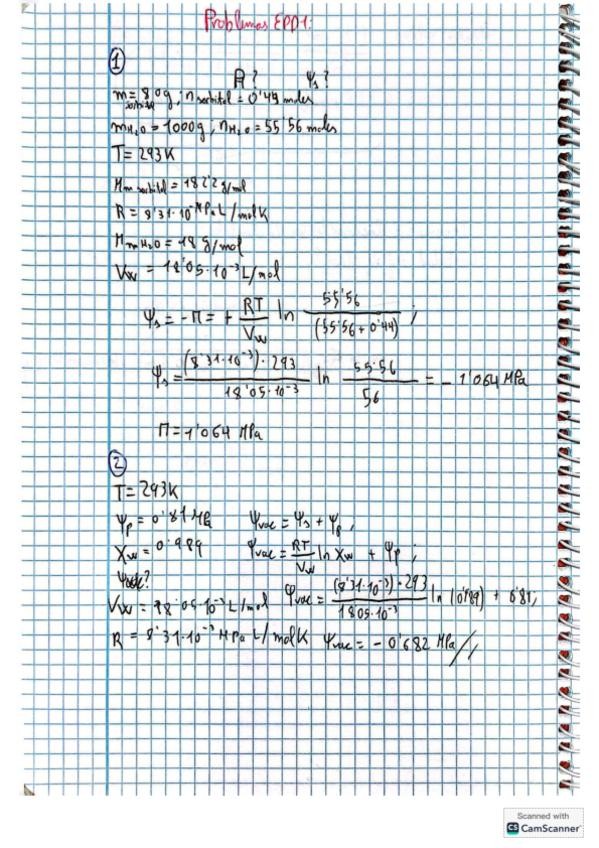 Problemas EPD1:
1
Π? Ψs?
m sorbitol = 80g ; n sorbitol = 0'44 moles
mH2O = 1000g ; nH2O = 55'56 moles
T = 293K
Mm sorbitol = 182'2 g/mol
R = 8'31·10^-3 MPa L/mol K
Mm H2O = 18 g/mol
Vw = 18'05·10^-3 L/mol
Ψs = -Π = + RT/Vw ln 55'56/(55'56 + 0'44) ;
Ψs = (8'31·10^-3)·293/18'05·10^-3 ln 55'56/56 = - 1'064 MPa
Π = 1'064 MPa
2
T = 293K
Ψp = 0'81 MPa Ψvac = Ψs + Ψp ;
Xw = 0'989 Ψvac = RT/Vw ln Xw + Ψp ;
Ψvac?
Vw = 18'05·10^-3 L/mol Ψvac = (8'31·10^-3)·293/18'05·10^-3 ln (0'989) + 0'81 ;
R = 8'31·10^-3 MPa L/mol K Ψvac = - 0'682 MPa //
Scanned with
CS CamScanner